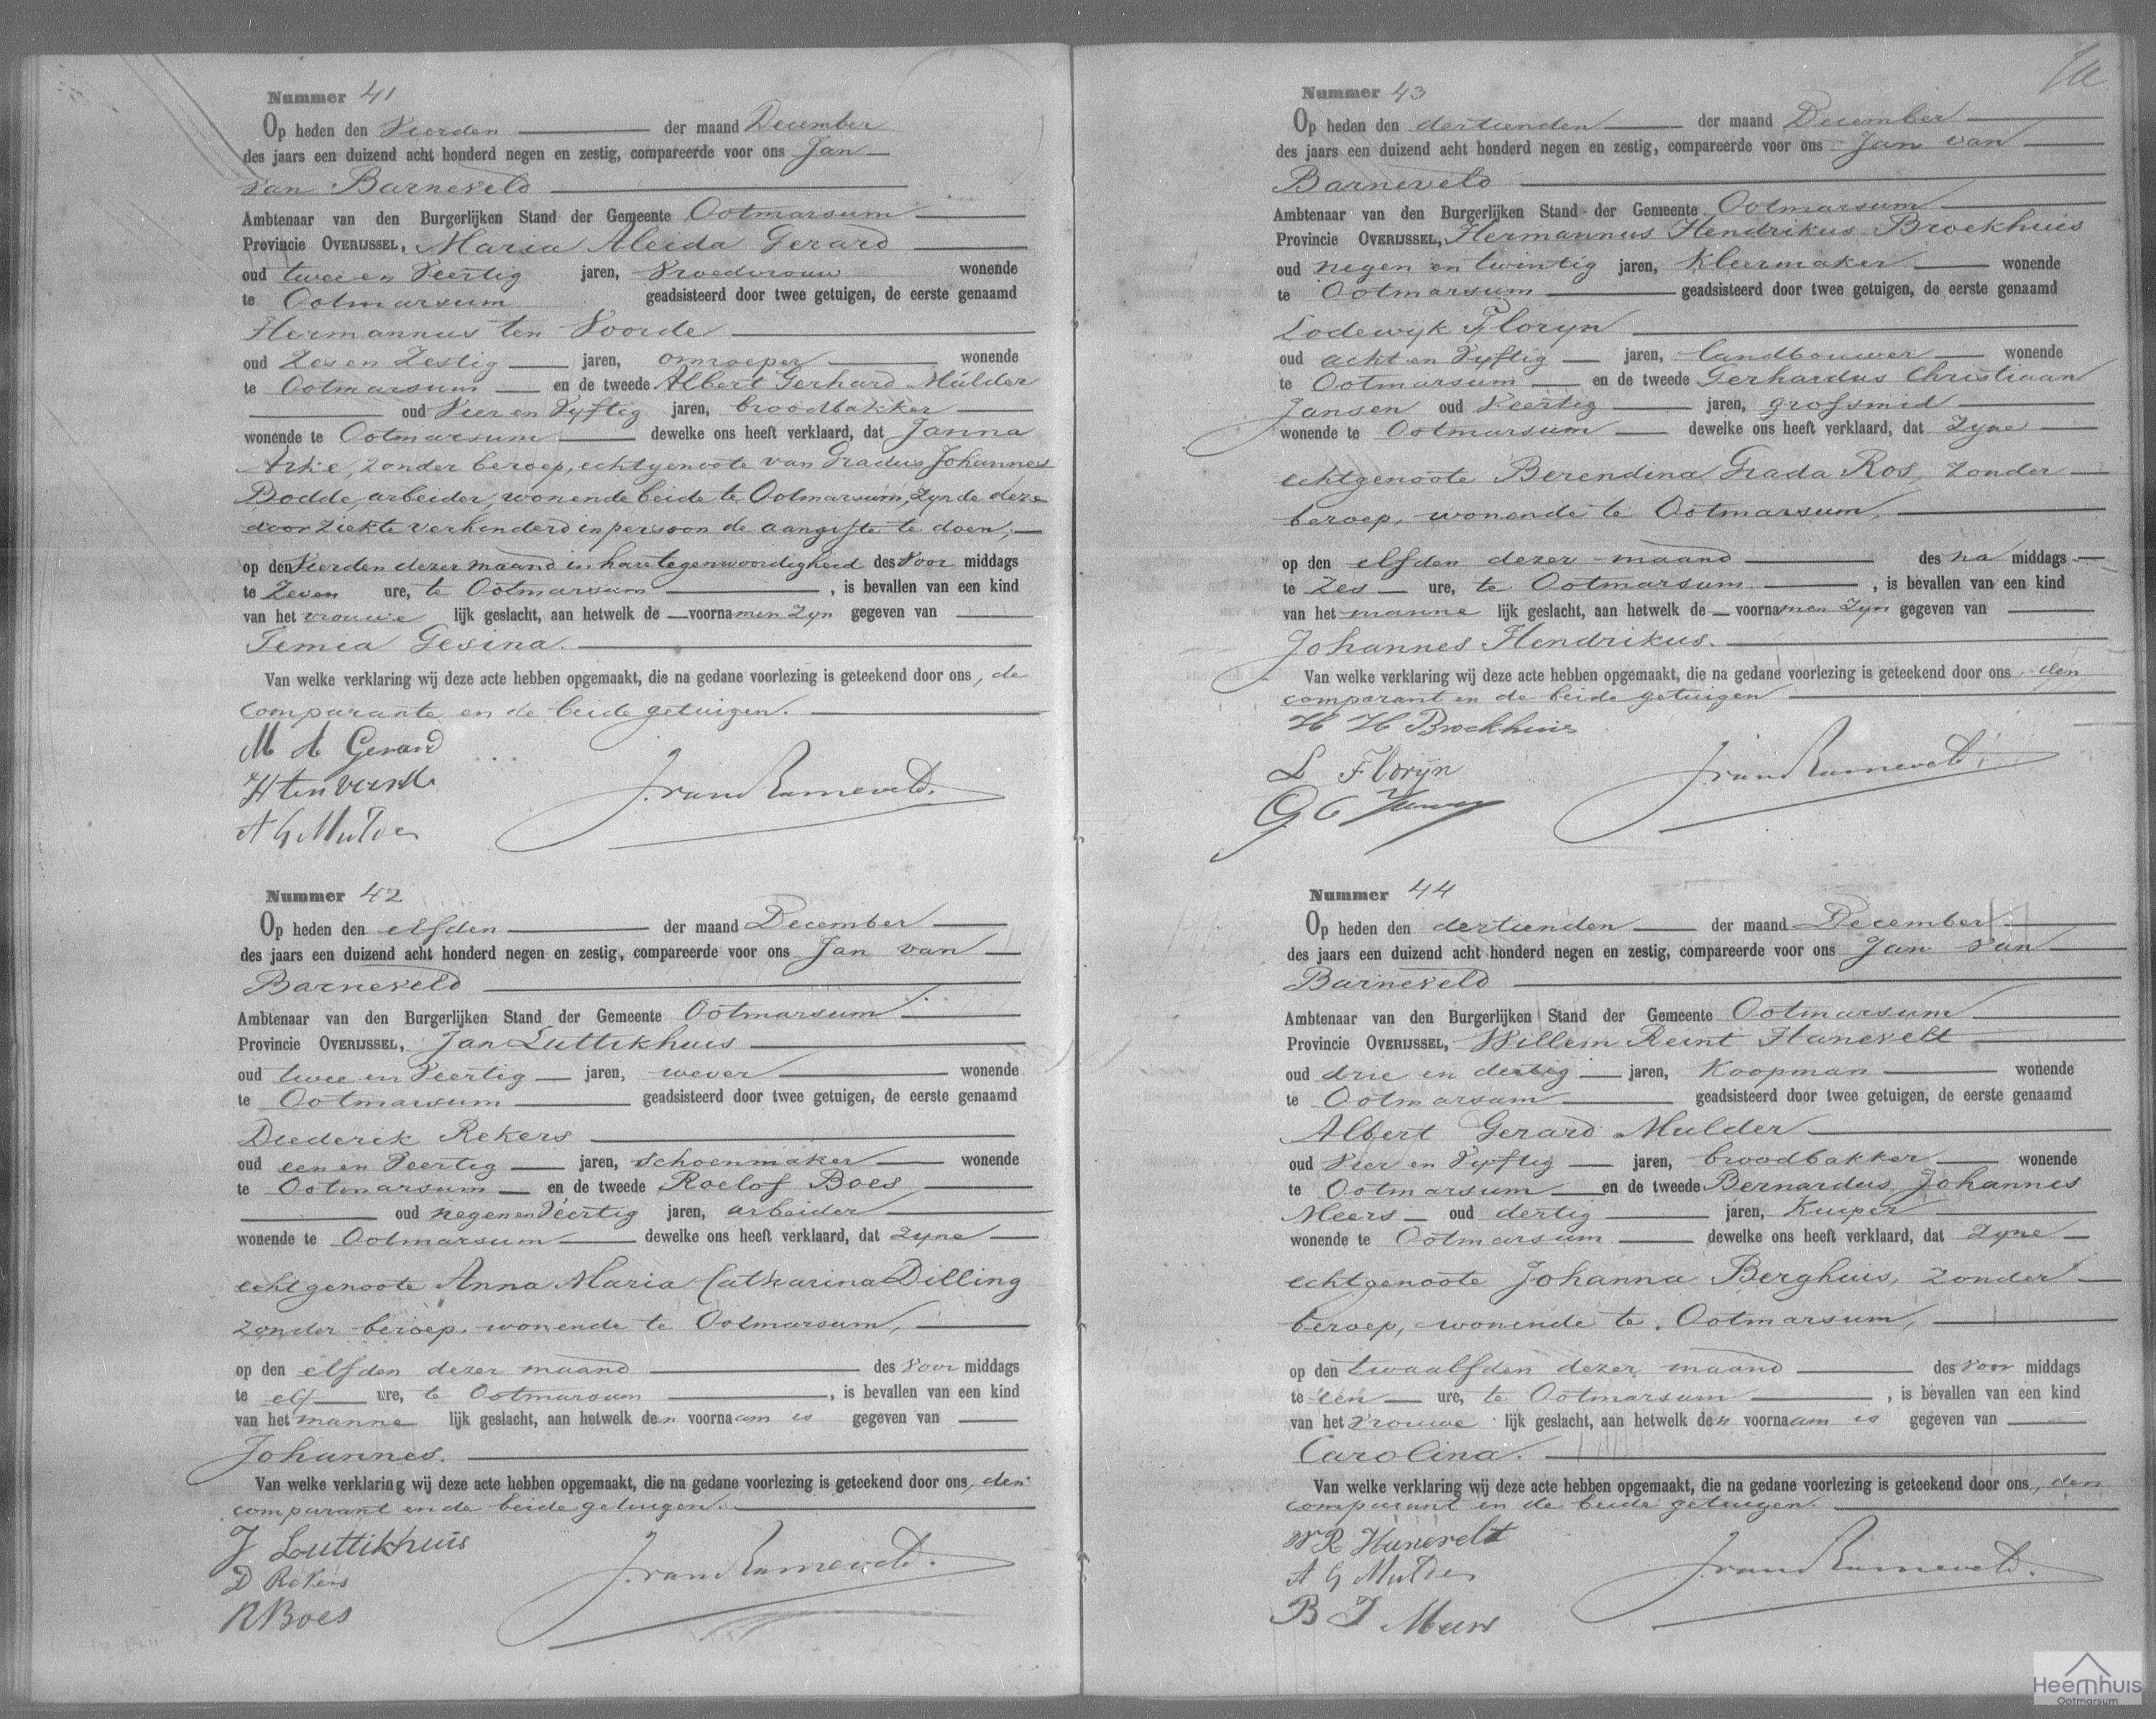 Nummer 41
Op heden den Vierden der maand December
des jaars een duizend acht honderd negen en zestig, compareerde voor ons Jan
van Barneveld
Ambtenaar van den Burgerlijken Stand der Gemeente Ootmarsum
Provincie OVERIJSSEL, Maria Aleida Gerard
oud twee en Veertig jaren, Vroedvrouw wonende
te Ootmarsum geadsisteerd door twee getuigen, de eerste genaamd
Hermannus ten Voorde
oud Zes en Zestig jaren, omroeper wonende
te Ootmarsum en de tweede Albert Gerhard Mulder
oud Vier en Vyftig jaren, broodbakker
wonende te Ootmarsum dewelke ons heeft verklaard, dat Janna
Arke, zonder beroep, echtgenoote van Gradus Johannes
Bodde, arbeider, wonende beide te Ootmarsum, zynde deze
door ziekte verhinderd in persoon de aangifte te doen;
op den Vierden dezer maand in hare tegenwoordigheid des Voor middags
te Zeven ure, te Ootmarsum, is bevallen van een kind
van het vrouwe lijk geslacht, aan hetwelk de voornamen zyn gegeven van
Gesina.
Van welke verklaring wij deze acte hebben opgemaakt, die na gedane voorlezing is geteekend door ons, de
comparante en de beide getuigen.
M A Gerard
H ten Voorde
A G Mulder
J. van Barneveld.
Nummer 42
Op heden den elfden der maand December
des jaars een duizend acht honderd negen en zestig, compareerde voor ons Jan van
Barneveld
Ambtenaar van den Burgerlijken Stand der Gemeente Ootmarsum
Provincie OVERIJSSEL, Jan Luttikhuis
oud twee en Veertig jaren, wever wonende
te Ootmarsum geadsisteerd door twee getuigen, de eerste genaamd
Diederik Rekers
oud een en Veertig jaren, schoenmaker wonende
te Ootmarsum en de tweede Roelof Boes
oud negen en Veertig jaren, arbeider
wonende te Ootmarsum dewelke ons heeft verklaard, dat zyne
echtgenoote Anna Maria Catharina Dilling
zonder beroep, wonende te Ootmarsum,
op den elfden dezer maand des Voor middags
te elf ure, te Ootmarsum, is bevallen van een kind
van het manne lijk geslacht, aan hetwelk den voornaam is gegeven van
Johannes.
Van welke verklaring wij deze acte hebben opgemaakt, die na gedane voorlezing is geteekend door ons, den
comparant en de beide getuigen.
J Luttikhuis
D Rekers
R Boes
J. van Barneveld.
Nummer 43
Op heden den dertienden der maand December
des jaars een duizend acht honderd negen en zestig, compareerde voor ons Jan van
Barneveld
Ambtenaar van den Burgerlijken Stand der Gemeente Ootmarsum
Provincie OVERIJSSEL, Hermannus Hendrikus Broekhuis
oud negen en twintig jaren, Kleermaker wonende
te Ootmarsum geadsisteerd door twee getuigen, de eerste genaamd
Lodewijk Floryn
oud acht en Vyftig jaren, landbouwer wonende
te Ootmarsum en de tweede Gerhardus Christiaan
Jansen oud Veertig jaren, grofsmid
wonende te Ootmarsum dewelke ons heeft verklaard, dat Zyne
echtgenoote Berendina Grada Ros, zonder
beroep, wonende te Ootmarsum,
op den elfden dezer maand des na middags
te Zes ure, te Ootmarsum, is bevallen van een kind
van het manne lijk geslacht, aan hetwelk de voornamen zyn gegeven van
Johannes Hendrikus.
Van welke verklaring wij deze acte hebben opgemaakt, die na gedane voorlezing is geteekend door ons, den
comparant en de beide getuigen
H H Broekhuis
L Floryn
G C Jansen
J. van Barneveld.
Nummer 44
Op heden den dertienden der maand December
des jaars een duizend acht honderd negen en zestig, compareerde voor ons Jan van
Barneveld
Ambtenaar van den Burgerlijken Stand der Gemeente Ootmarsum
Provincie OVERIJSSEL, Willem Reint Hanevelt
oud drie en dertig jaren, Koopman wonende
te Ootmarsum geadsisteerd door twee getuigen, de eerste genaamd
Albert Gerard Mulder
oud Vier en Vyftig jaren, broodbakker wonende
te Ootmarsum en de tweede Bernardus Johannes
Meers oud dertig jaren, Kuiper
wonende te Ootmarsum dewelke ons heeft verklaard, dat Zyne
echtgenoote Johanna Berghuis, zonder
beroep, wonende te Ootmarsum,
op den twaalfden dezer maand des Voor middags
te een ure, te Ootmarsum, is bevallen van een kind
van het vrouwe lijk geslacht, aan hetwelk den voornaam is gegeven van
Carolina.
Van welke verklaring wij deze acte hebben opgemaakt, die na gedane voorlezing is geteekend door ons, den
comparant en de beide getuigen.
W R Hanevelt
A G Mulder
B J Meers
J. van Barneveld.
Heemhuis
Ootmarsum